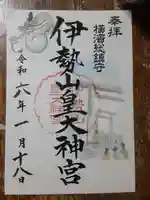 奉拝
横濱総鎮守
伊勢山皇大神宮
令和六年一月十八日